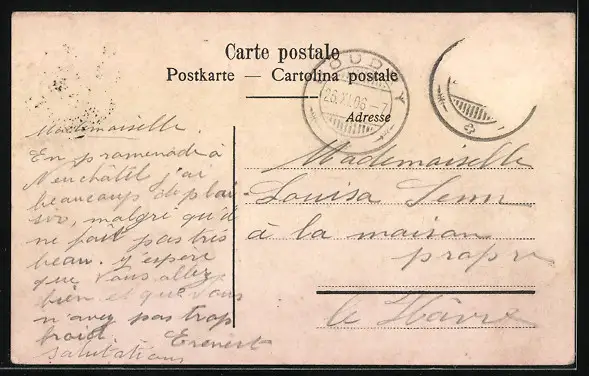 Carte postale
Postkarte — Cartolina postale
BOUDRY
23.XI.06-7
Adresse
Mademoiselle.
En promenade à
Neuchâtel j'ai
beaucoup de plai
sir, malgré qu'il
ne fait pas très
beau. j'espère
que vous allez
bien et que vous
n'avez pas trop
froid.
Salutations
Mademoiselle
Louisa Senn
à la maison
propre
le Hâvre